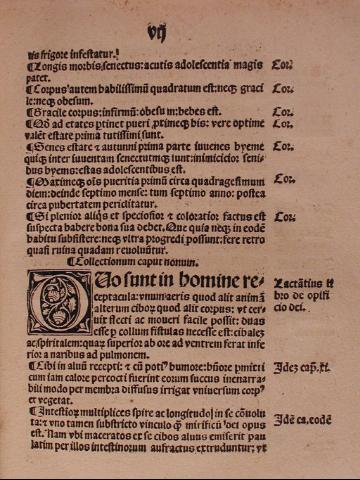 vij
tis frigore infestatur.
¶Longis morbis senectus: acutis adolescentia magis Cor.
patet.
¶Corpus autem habilissimũ quadratum est: neqȝ graci Cor.
le: neqȝ obesum.
¶Gracile corpus: infirmũ: obesũ m: hebes est. Cor.
¶Qd ad etates ptinet pueri ꝓtimeqȝ his: vere optime Cor.
valẽt estate prima tutissimi sunt.
¶Senes estate ⁊ autunni prima parte iuuenes hyeme Cor.
quiqȝ inter iuuentam senectutemqȝ sunt: inimicior seni-
bus hyems: estas adolescentibus est.
¶Maximeqȝ ois pueritia primũ circa quadragesimum Cor.
diem: deinde septimo mense: tum septimo anno: postea
circa pubertatem periclitatur.
¶Si plenior aliq̃s et speciosior ⁊ coloratior factus est Cor.
suspecta habere bona sua debet. Que quia neqȝ in eodẽ
habitu subsistere: neqȝ vltra progredi possunt: fere retro
quasi ruina quadam reuoluũtur.
¶Collectionum caput nonum.
QUo sunt in homine re- Lactãtius li
ceptacula: vnum aeris quod alit animã bro de opifi
alterum cibor̃ quod alit corpus: vt cer- cio dei.
uix flecti ac moueri facile possit: duas
esse p collum fistulas necesse est: cibalez
ac spiritalem: quaȝ superior ab ore ad ventrem ferat infe
rior a naribus ad pulmonem.
¶Cibi in aluũ recepti: ⁊ cũ pot⁹ humore: bñore pmixti Idez cap. xi.
cum iam calore percocti fuerint eorum succus inenarra-
bili modo per membra diffusus irrigat vniuersum corp⁹
et vegetat.
¶Intestior̃ multiplices spire ac longitudo in se cõuolu Idẽ ca. eodẽ
ta: ⁊ vno tamen substricto vinculo q̃ȝ mirificũ dei opus
est. Nam vbi maceratos ex se cibos aluus emiserit pau
latim per illos intestinorum anfractus extruduntur: vt